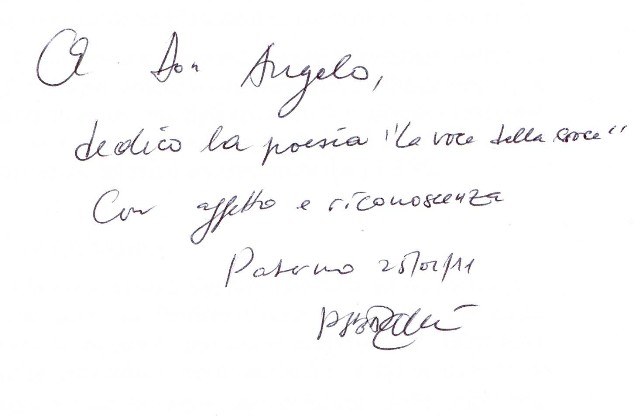 A Don Angelo,
dedico la poesia "la voce della croce"
Con affetto e riconoscenza
Paternò 25/02/11